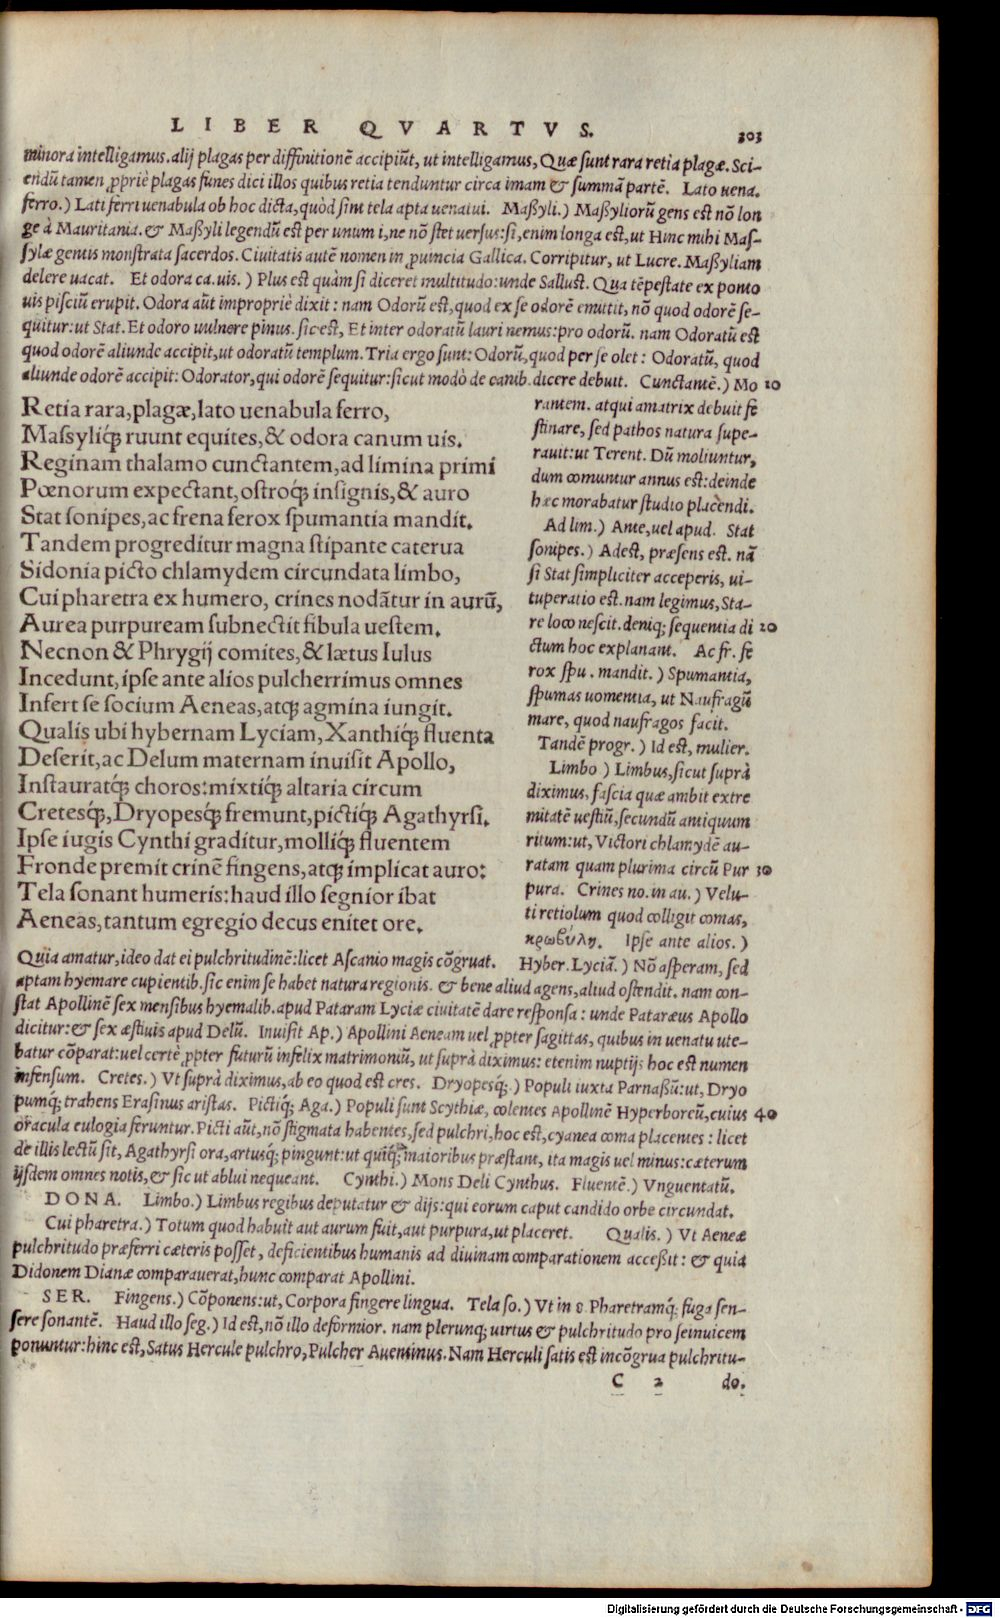 LIBER QVARTVS. 303
minora intelligamus. alij plagas per diffinitionē accipiūt, ut intelligamus, Quæ sunt rara retia plagæ. Sci-
endū tamen ꝓpriè plagas funes dici illos quibus retia tenduntur circa imam & summā partē. Lato uena.
ferro.) Lati ferri uenabula ob hoc dicta, quòd sint tela apta uenatui. Maßyli.) Maßyliorū gens est nō lon
ge à Mauritania. & Maßyli legendū est per unum i, ne nō stet uersus: si, enim longa est, ut Hinc mihi Mas-
sylæ gentis monstrata sacerdos. Ciuitatis autē nomen in ꝓuincia Gallica. Corripitur, ut Lucre. Maßyliam
delere uacat. Et odora ca. uis. ) Plus est quàm si diceret multitudo: unde Sallust. Qua tēpestate ex ponto
uis pisciū erupit. Odora aūt impropriè dixit: nam Odorū est, quod ex se odorē emittit, nō quod odorē se-
quitur: ut Stat. Et odoro uulnere pinus. sic est, Et inter odoratū lauri nemus: pro odorū. nam Odoratū est
quod odorē aliunde accipit, ut odoratū templum. Tria ergo sunt: Odorū, quod per se olet: Odoratū, quod
aliunde odorē accipit: Odorator, qui odorē sequitur: sicut modò de canib. dicere debuit. Cunctantē.) Mo 10
Retia rara, plagæ, lato uenabula ferro,
Massyliq́ꝫ ruunt equites, & odora canum uis.
Reginam thalamo cunctantem, ad limina primi
Pœnorum expectant, ostroq́ꝫ insignis, & auro
Stat sonipes, ac frena ferox spumantia mandit.
Tandem progreditur magna stipante caterua
Sidonia picto chlamydem circundata limbo,
Cui pharetra ex humero, crines nodātur in aurū,
Aurea purpuream subnectit fibula uestem.
Necnon & Phrygij comites, & lætus Iulus
Incedunt, ipse ante alios pulcherrimus omnes
Infert se socium Aeneas, atqꝫ agmina iungit.
Qualis ubi hybernam Lyciam, Xanthiq́ꝫ fluenta
Deserit, ac Delum maternam inuisit Apollo,
Instauratq́ꝫ choros: mixtiq́ꝫ altaria circum
Cretesq́ꝫ, Dryopesq́ꝫ fremunt, pictiq́ꝫ Agathyrsi.
Ipse iugis Cynthi graditur, molliq́ꝫ fluentem
Fronde premit crinē fingens, atqꝫ implicat auro:
Tela sonant humeris: haud illo segnior ibat
Aeneas, tantum egregio decus enitet ore.
rantem. atqui amatrix debuit fe
stinare, sed pathos natura supe-
rauit: ut Terent. Dū moliuntur,
dum comuntur annus est: deinde
hæc morabatur studio placēdi.
Ad lim.) Ante, uel apud. Stat
sonipes.) Adest, præsens est. nā
si Stat simpliciter acceperis, ui-
tuperatio est. nam legimus, Sta-
re loco nescit. deniqꝫ sequentia di 20
ctum hoc explanant. Ac fr. fe
rox spu. mandit.) Spumantia,
spumas uomentia, ut Naufragū
mare, quod naufragos facit.
Tandē progr.) Id est, mulier.
Limbo ) Limbus, sicut suprà
diximus, fascia quæ ambit extre
mitatē uestiū, secundū antiquum
ritum: ut, Victori chlamydē au-
ratam quam plurima circū Pur 30
pura. Crines no. in au.) Velu-
ti retiolum quod colligit comas,
κρωβύλη. Ipse ante alios.)
Quia amatur, ideo dat ei pulchritudinē: licet Ascanio magis cōgruat. Hyber. Lyciā.) Nō asperam, sed
aptam hyemare cupientib. sic enim se habet natura regionis. & bene aliud agens, aliud ostendit. nam con-
stat Apollinē sex mensibus hyemalib. apud Pataram Lyciæ ciuitatē dare responsa: unde Pataræus Apollo
dicitur: & sex æstiuis apud Delū. Inuisit Ap.) Apollini Aeneam uel ꝓpter sagittas, quibus in uenatu ute-
batur cōparat: uel certè ꝓpter futurū infelix matrimoniū, ut suprà diximus: etenim nuptijs hoc est numen
infensum. Cretes.) Vt suprà diximus, ab eo quod est cres. Dryopesq́ꝫ.) Populi iuxta Parnaßū: ut, Dryo
pumq́ꝫ trahens Erasinus aristas. Pictiq́ꝫ Aga.) Populi sunt Scythiæ, colentes Apollinē Hyperboreū, cuius 40
oracula eulogia feruntur. Picti aūt, nō stigmata habentes, sed pulchri, hoc est, cyanea coma placentes: licet
de illis lectū sit, Agathyrsi ora, artusq́ꝫ pingunt: ut quiqꝫ maioribus præstant, ita magis uel minus: cæterum
ijsdem omnes notis, & sic ut ablui nequeant. Cynthi.) Mons Deli Cynthus. Fluentē.) Vnguentatū.
DONA. Limbo.) Limbus regibus deputatur & dijs: qui eorum caput candido orbe circundat.
Cui pharetra.) Totum quod habuit aut aurum fuit, aut purpura, ut placeret. Qualis.) Vt Aeneæ
pulchritudo præferri cæteris posset, deficientibus humanis ad diuinam comparationem acceßit: & quia
Didonem Dianæ comparauerat, hunc comparat Apollini.
SER. Fingens.) Cōponens: ut, Corpora fingere lingua. Tela so.) Vt in 8. Pharetramq́ꝫ fuga sen-
sere sonantē. Haud illo seg.) Id est, nō illo deformior. nam plerunqꝫ uirtus & pulchritudo pro seinuicem
ponuntur: hinc est, Satus Hercule pulchro, Pulcher Auentinus. Nam Herculi satis est incōgrua pulchritu-
C 2 do.
Digitalisierung gefördert durch die Deutsche Forschungsgemeinschaft - DFG